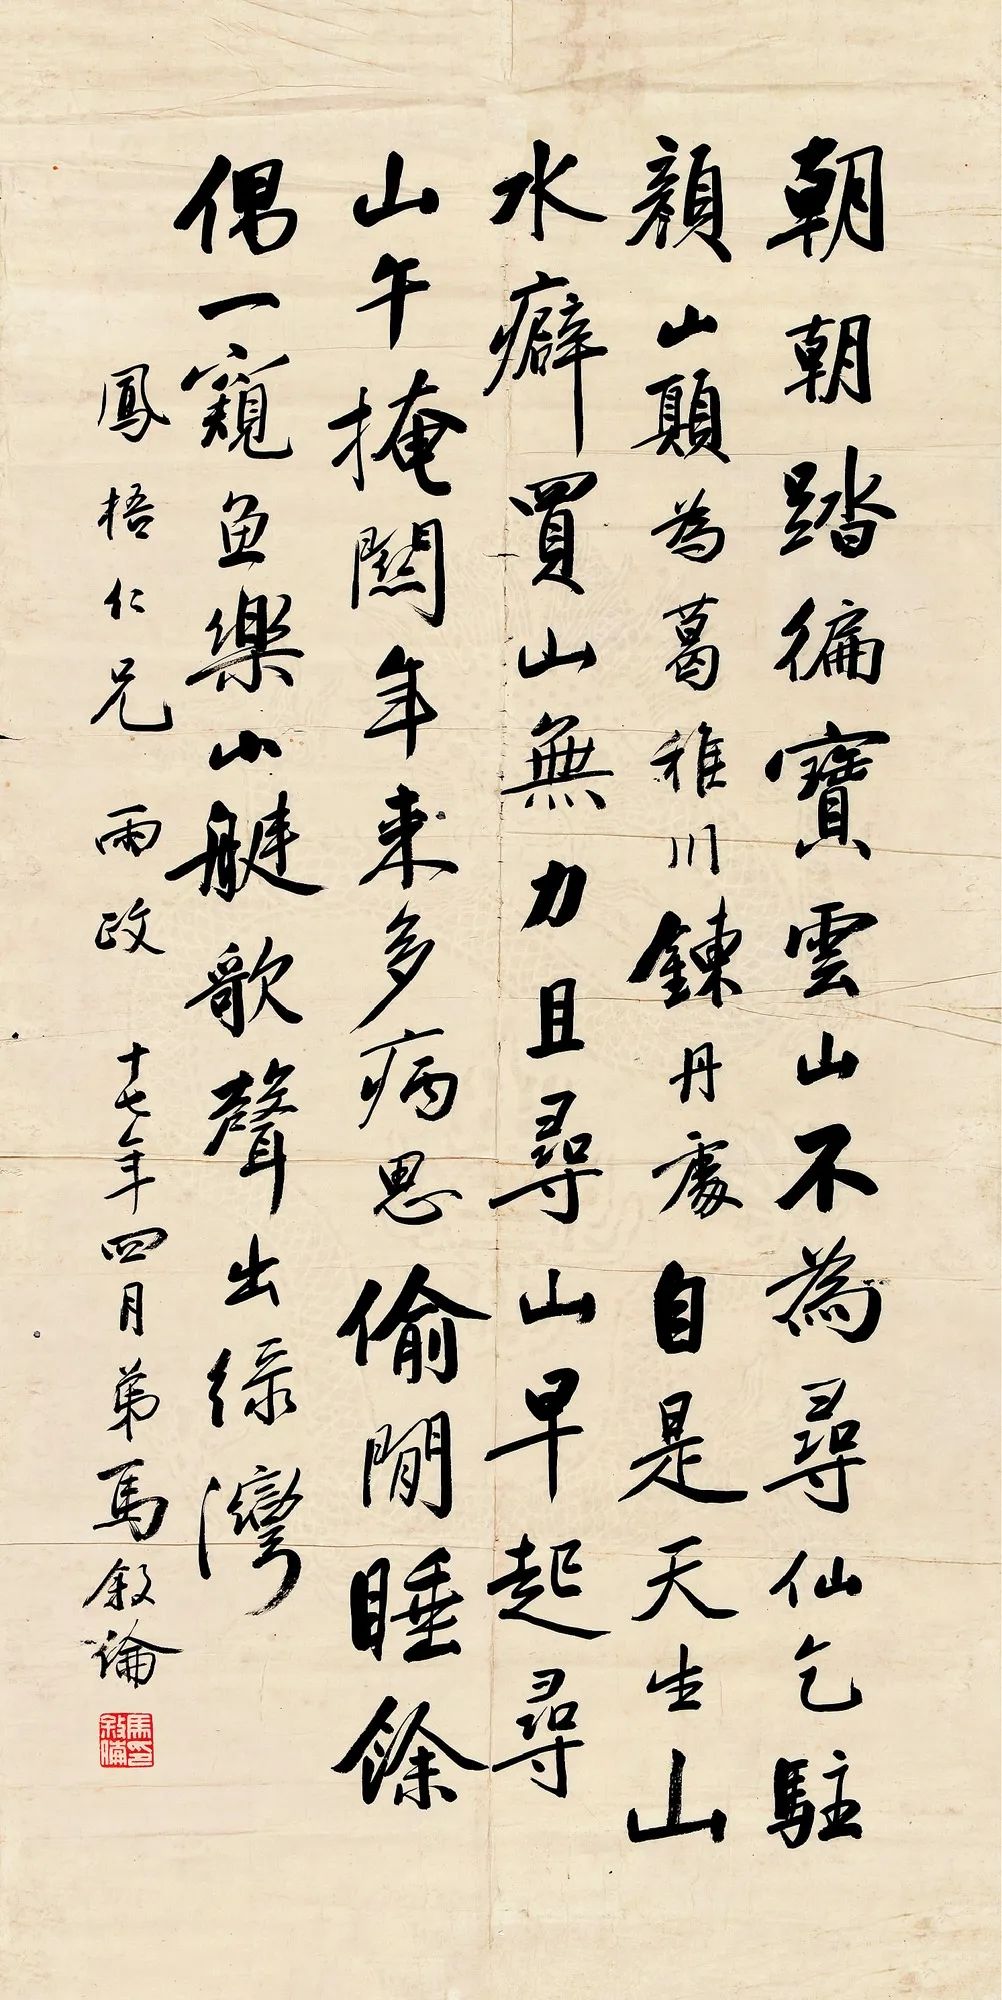 朝朝踏徧寶雲山不為尋仙乞駐
顏山顛為葛稚川鍊丹處自是天生山
水癖買山無力且尋山早起尋
山午掩關年來多病思偷閒睡餘
偶一窺魚樂小艇歌聲出綠灣
鳳梧仁兄 雨政 十七年四月弟馬敘倫
馬敘倫印